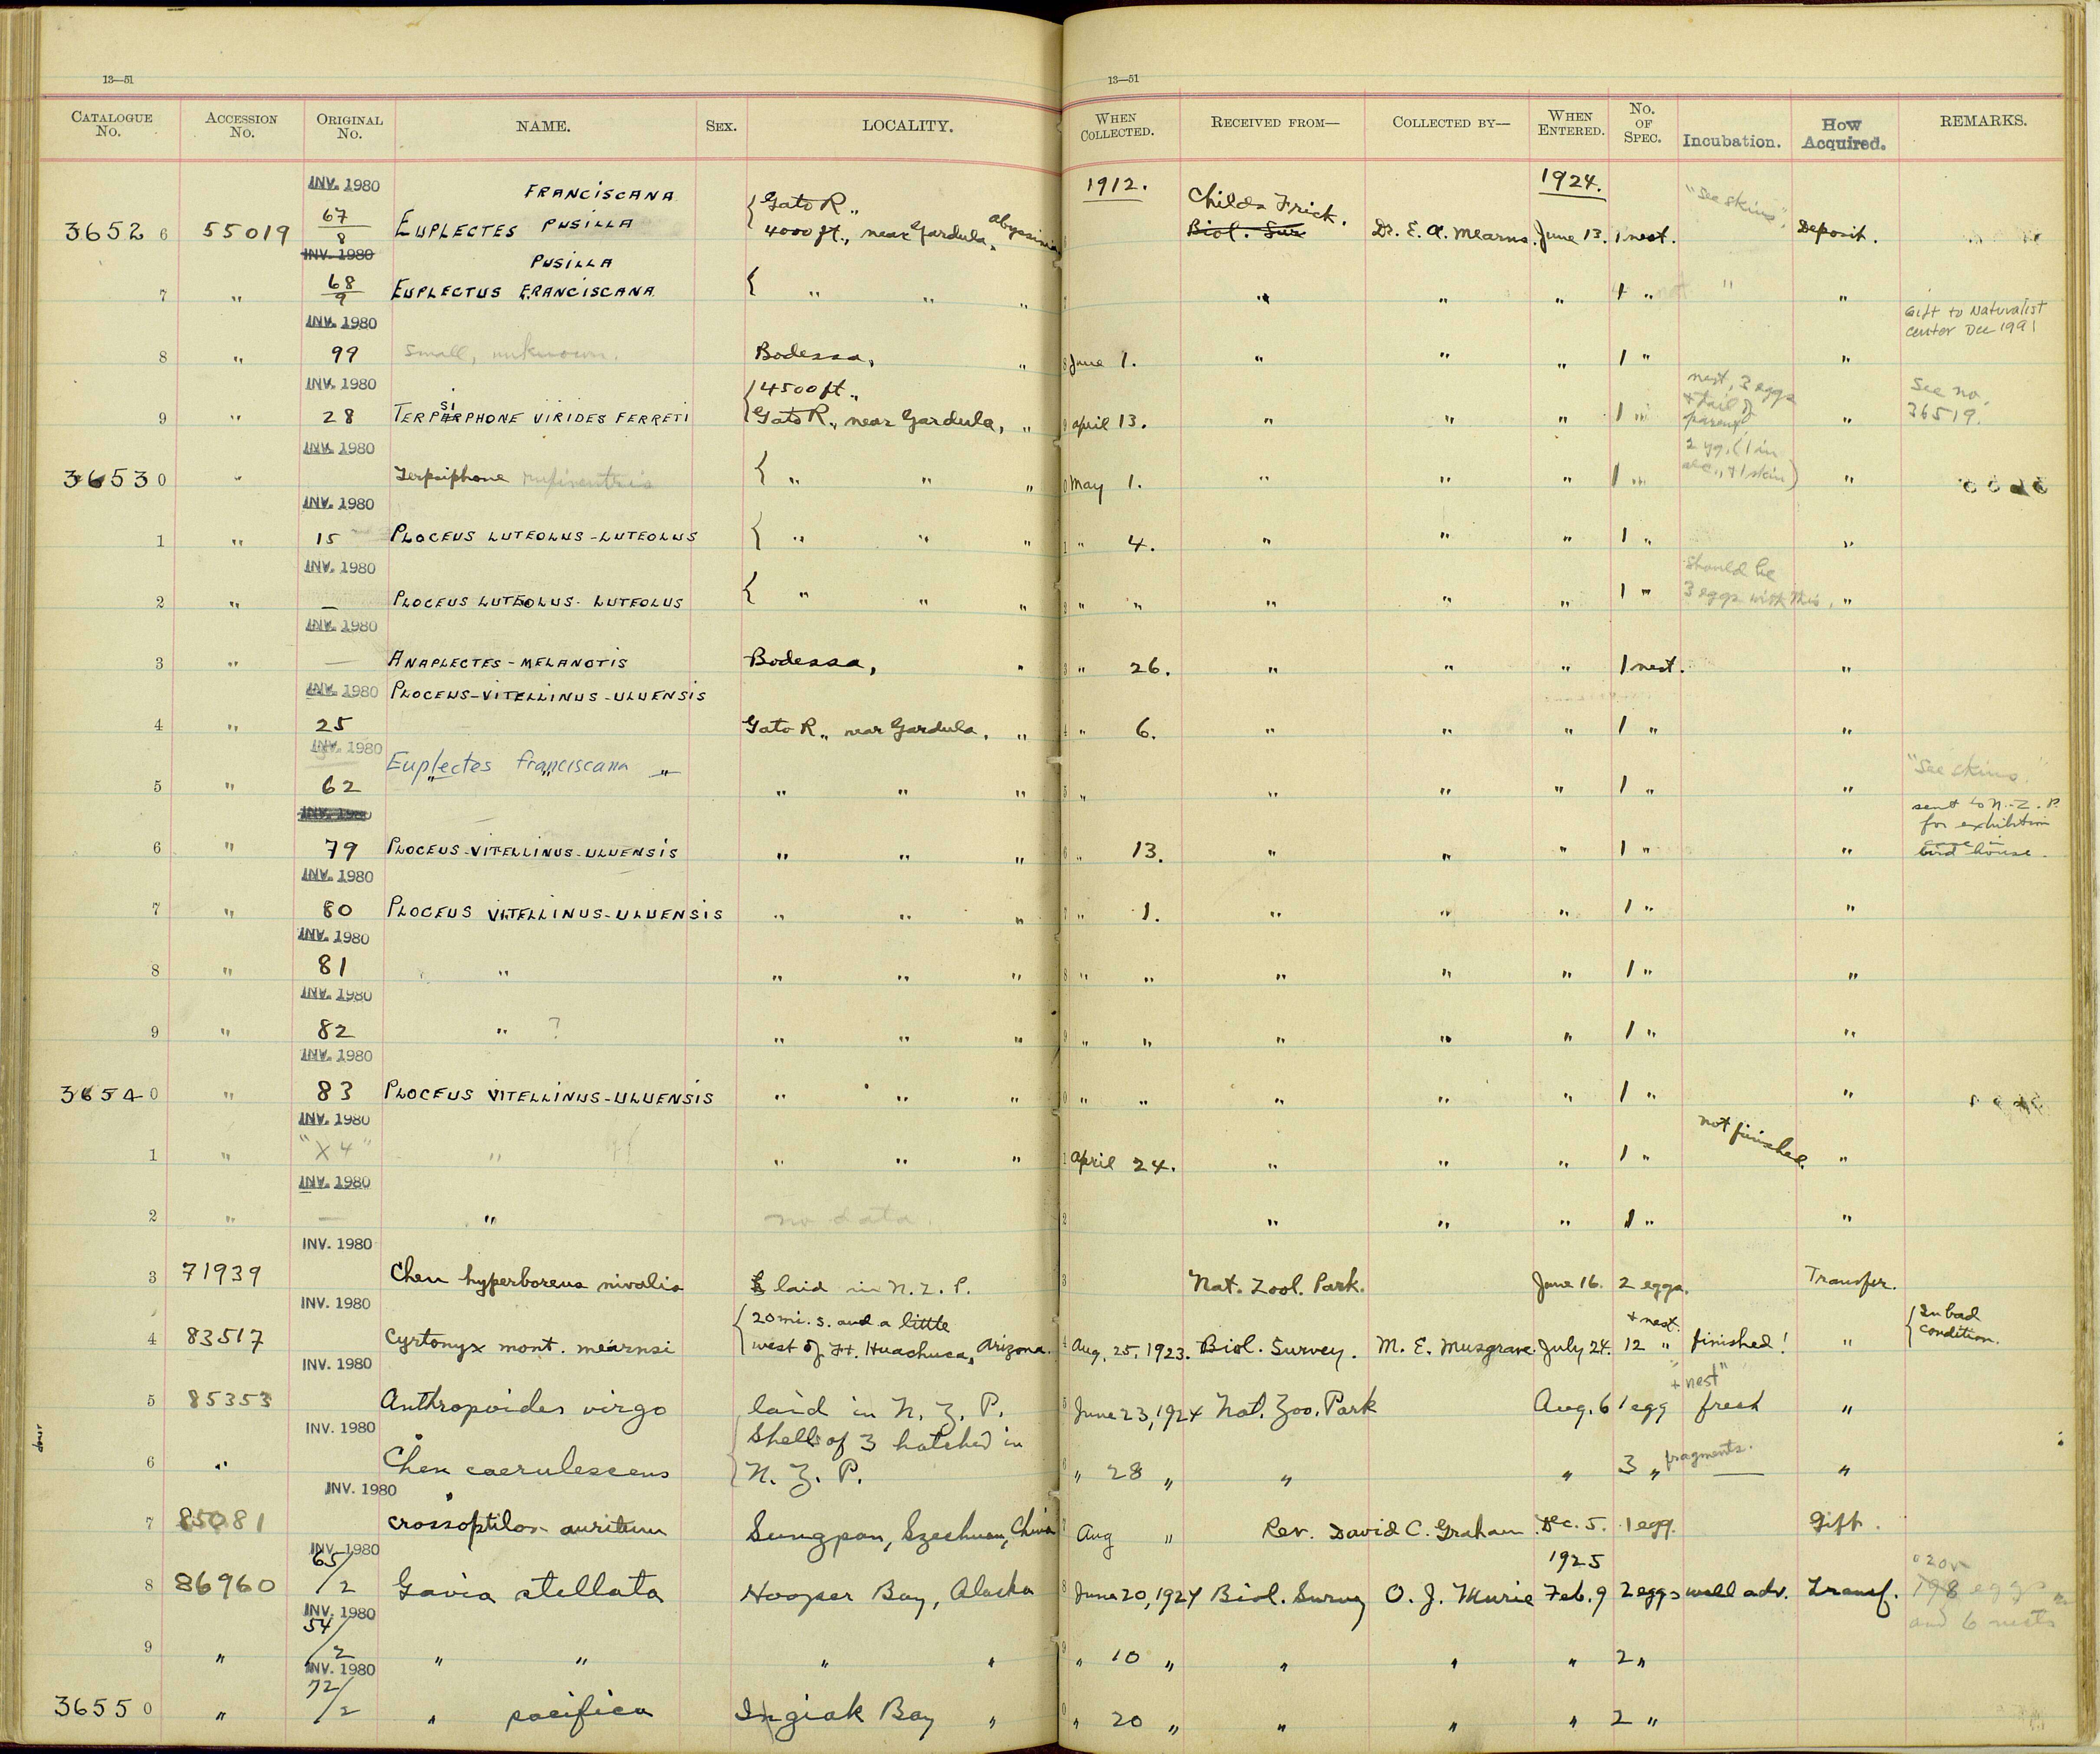 13—51
13—51
CATALOGUE No. ACCESSION No. ORIGINAL No. NAME. SEX. LOCALITY. WHEN COLLECTED. RECEIVED FROM— COLLECTED BY— WHEN ENTERED. NO. OF SPEC. Incubation. How Acquired. REMARKS.
INV. 1980 FRANCISCANA 1912. Childs Frick. 1924. "See skins"
36526 55019 67/8 EUPLECTES PUSILLA { Gato R., 4000 ft., near Gardula, Abyssinia Biol. Sur Dr. E. A. Mearns. June 13. 1 nest. Deposit.
INV. 1980 PUSILLA
7 " 68/9 EUPLECTUS FRANCISCANA { " " " " " " 1 " " "
INV. 1980 Gift to Naturalist center Dec 1991
8 " 99 Small, unknown. Bodessa, " 8 June 1. " " " 1 " "
INV. 1980 { 4500 ft., nest, 3 eggs & tail of parent See no. 36519.
9 " 28 TERPSIPHONE VIRIDES FERRETI Gato R., near Gardula, " 9 April 13. " " " 1 " "
INV. 1980 2 yg. (1 in alc., + 1 skin)
36530 " Terpsiphone rufiventris { " " " 0 May 1. " " " 1 " "
INV. 1980
1 " 15 PLOCEUS LUTEOLUS-LUTEOLUS { " " " 1 " 4. " " " 1 " "
INV. 1980 Should be 3 eggs with this.
2 " — PLOCEUS LUTEOLUS-LUTEOLUS { " " " " " " " " 1 " "
INV. 1980
3 " — ANAPLECTES-MELANOTIS Bodessa, " 3 " 26. " " " 1 nest. "
INV. 1980 PLOCEUS-VITELLINUS-ULUENSIS
4 " 25 Gato R., near Gardula, " 4 " 6. " " " 1 " "
INV. 1980 Euplectes franciscana "See skins."
5 " 62 " " " " " " 5 " " " " 1 " "
INV. 1980 sent to N.Z.P. for exhibition case in bird house.
6 " 79 PLOCEUS-VITELLINUS-ULUENSIS " " " 6 " 13. " " " 1 " "
INV. 1980
7 " 80 PLOCEUS VITELLINUS-ULUENSIS " " " 7 " 1. " " " 1 " "
INV. 1980
8 " 81 " " " " 8 " " " " " 1 " "
INV. 1980
9 " 82 " ? " " " 9 " " " " " 1 " "
INV. 1980
36540 " 83 PLOCEUS VITELLINUS-ULUENSIS " " " 0 " " " " " 1 " "
INV. 1980
1 " "X4" " " " " 1 April 24. " " " 1 " not finished "
INV. 1980
2 " — " no data. 2 " " " 1 " "
INV. 1980
3 71939 Chen hyperboreus nivalis laid in N.Z.P. 3 Nat. Zool. Park. June 16. 2 eggs. Transfer.
INV. 1980 { 20 mi. s. and a little + nest. { In bad condition.
4 83517 Cyrtonyx mont. mearnsi west of Ft. Huachuca, Arizona. 4 Aug. 25, 1923. Biol. Survey. M. E. Musgrave. July 24. 12 " finished! "
INV. 1980 + "nest"
5 85353 Anthropoides virgo laid in N. Z. P. 5 June 23, 1924 Nat. Zoo. Park Aug. 6 1 egg fresh "
INV. 1980 { Shells of 3 hatched in
6 " Chen caerulescens N. Z. P. 6 " 28 " " " 3 " fragments. — "
INV. 1980
7 85081 Crossoptilon auritum Sungpan, Szechuan, China 7 Aug " Rev. David C. Graham. Dec. 5. 1 egg. Gift.
INV. 1980 1925
8 86960 65/2 Gavia stellata Hooper Bay, Alaska 8 June 20, 1924 Biol. Survey O. J. Murie Feb. 9 2 eggs well adv. Transf. 198 eggs and 6 nests
INV. 1980
9 " 54/2 " " " " 9 " 10 " " " " 2 "
INV. 1980
36550 " 72/2 " pacifica Ingiak Bay " 0 " 20 " " " " 2 "